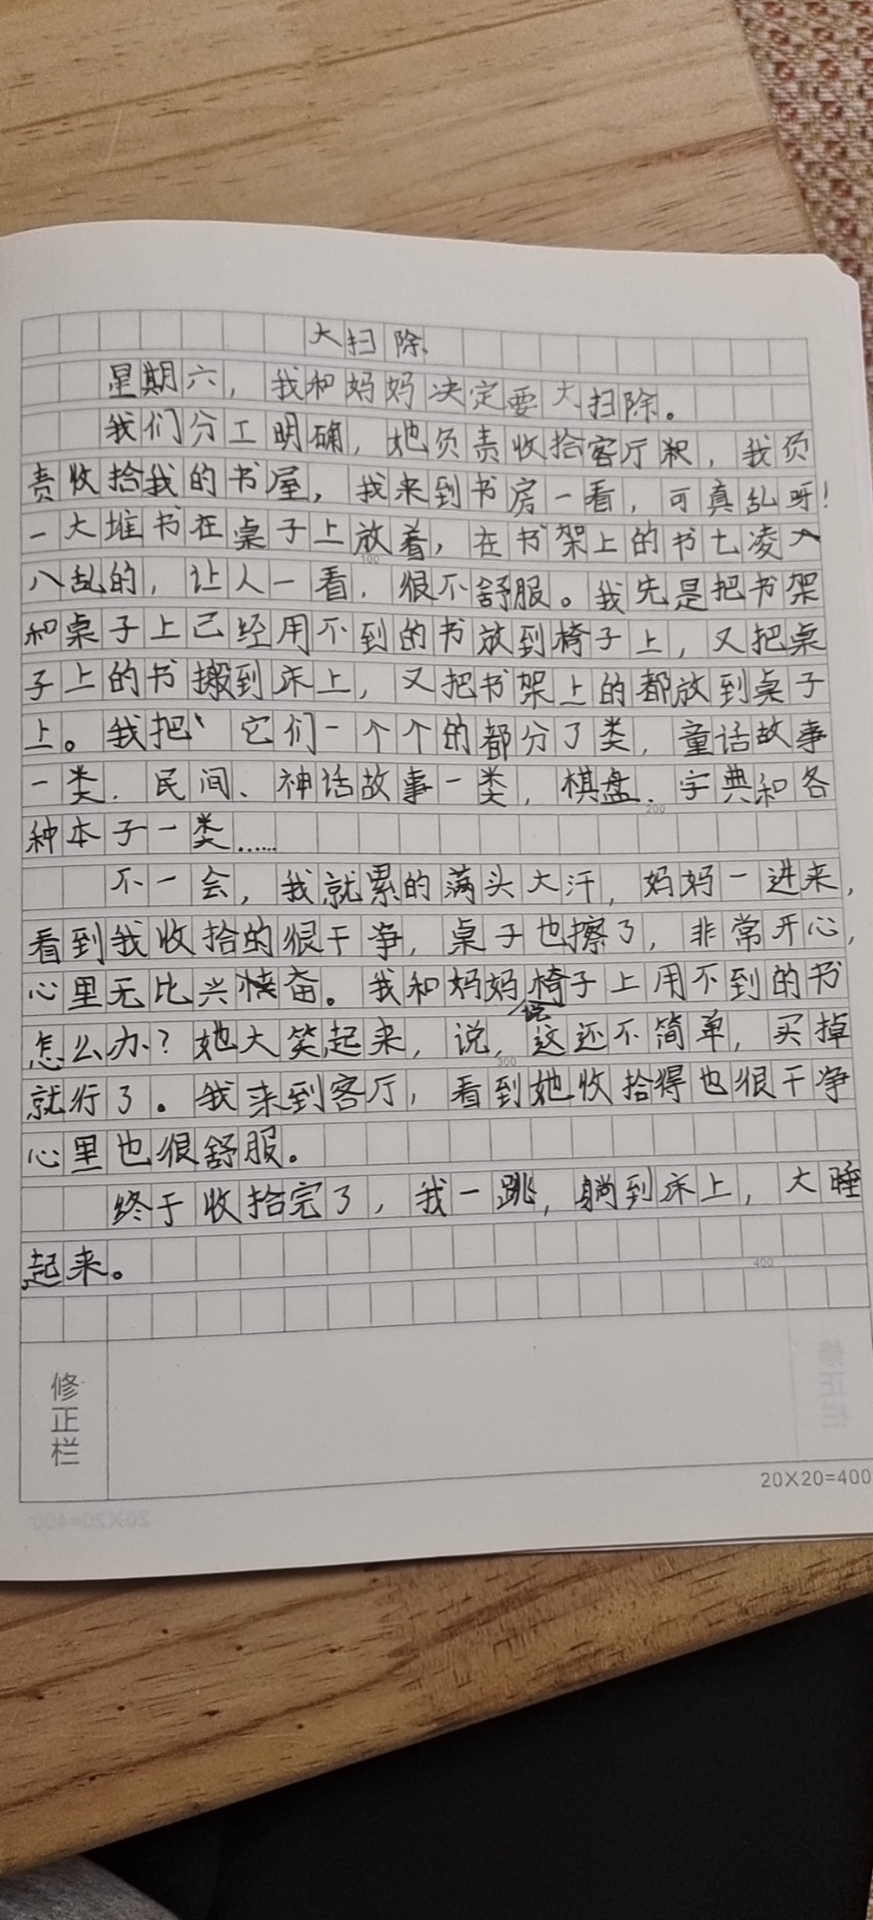 大扫除
星期六，我和妈妈决定要大扫除。
我们分工明确，她负责收拾客厅，我负
责收拾我的书屋，我来到书房一看，可真乱呀！
一大堆书在桌子上放着，在书架上的书七凌
八乱的，让人一看，很不舒服。我先是把书架
100
和桌子上已经用不到的书放到椅子上，又把桌
子上的书搬到床上，又把书架上的都放到桌子
上。我把、它们一个个的都分了类，童话故事
一类．民间、神话故事一类，棋盘．字典和各
200
种本子一类……
不一会，我就累的满头大汗，妈妈一进来，
看到我收拾的很干净，桌子也擦了，非常开心，
心里无比兴奋。我和妈妈说椅子上用不到的书
怎么办？她大笑起来，说，这还不简单，买掉
300
就行了。我来到客厅，看到她收拾得也很干净
心里也很舒服。
终于收拾完了，我一跳，躺到床上，大睡
起来。
400
修正栏
20×20=400